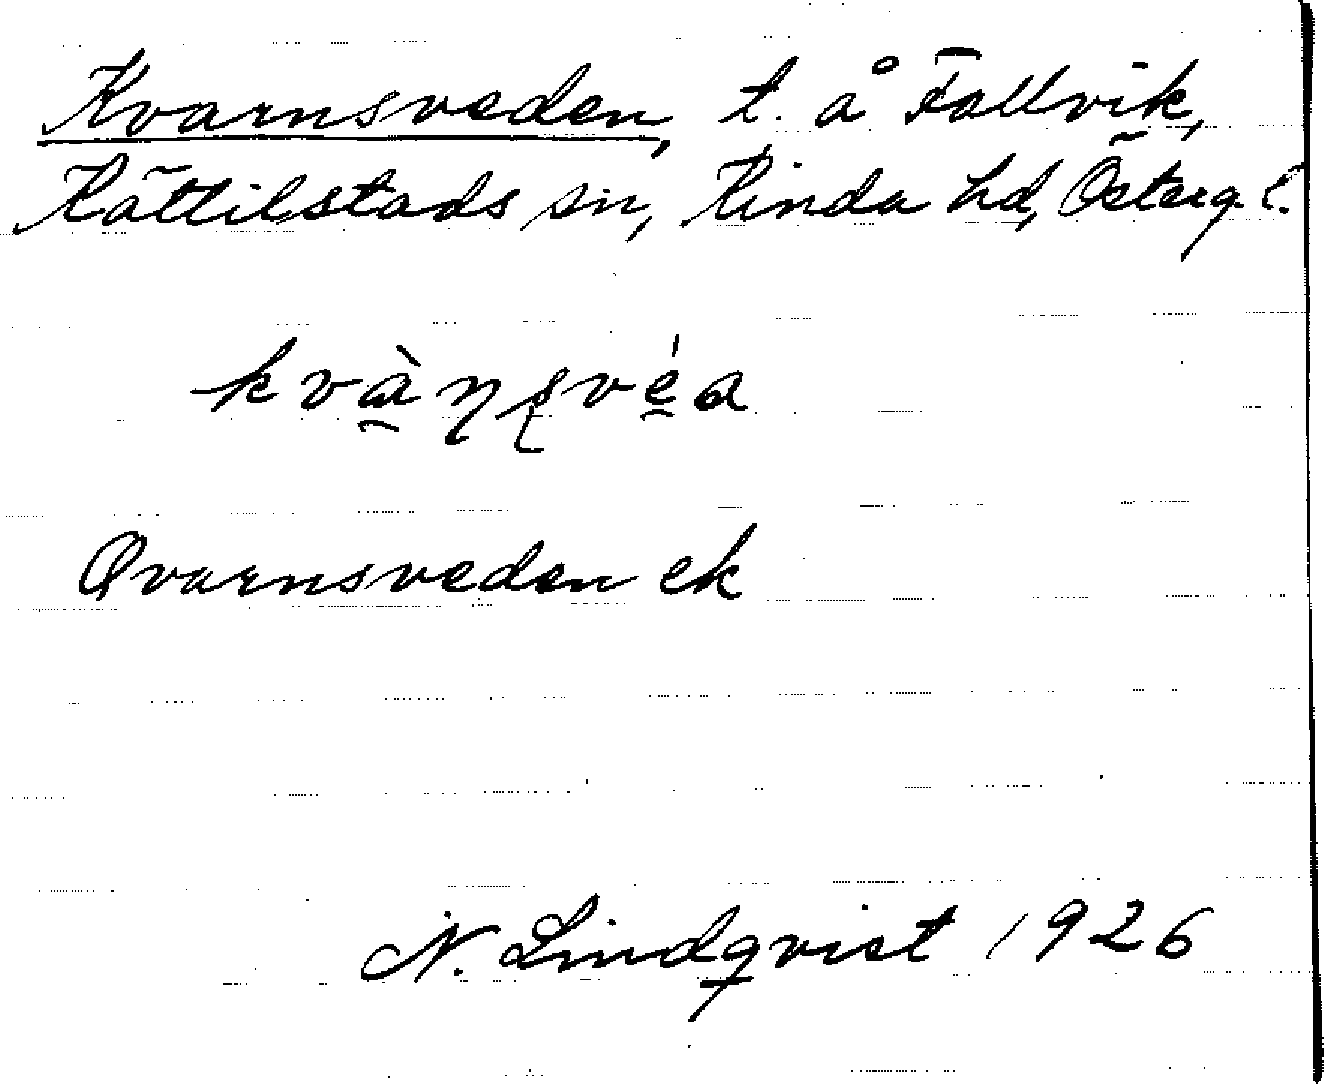 Kvarnsveden, t. å Fallvik,
Kättilstads sn, Kinda hd, Österg. l.
kvànsvéa
Qvarnsveden ek
N. Lindqvist 1926